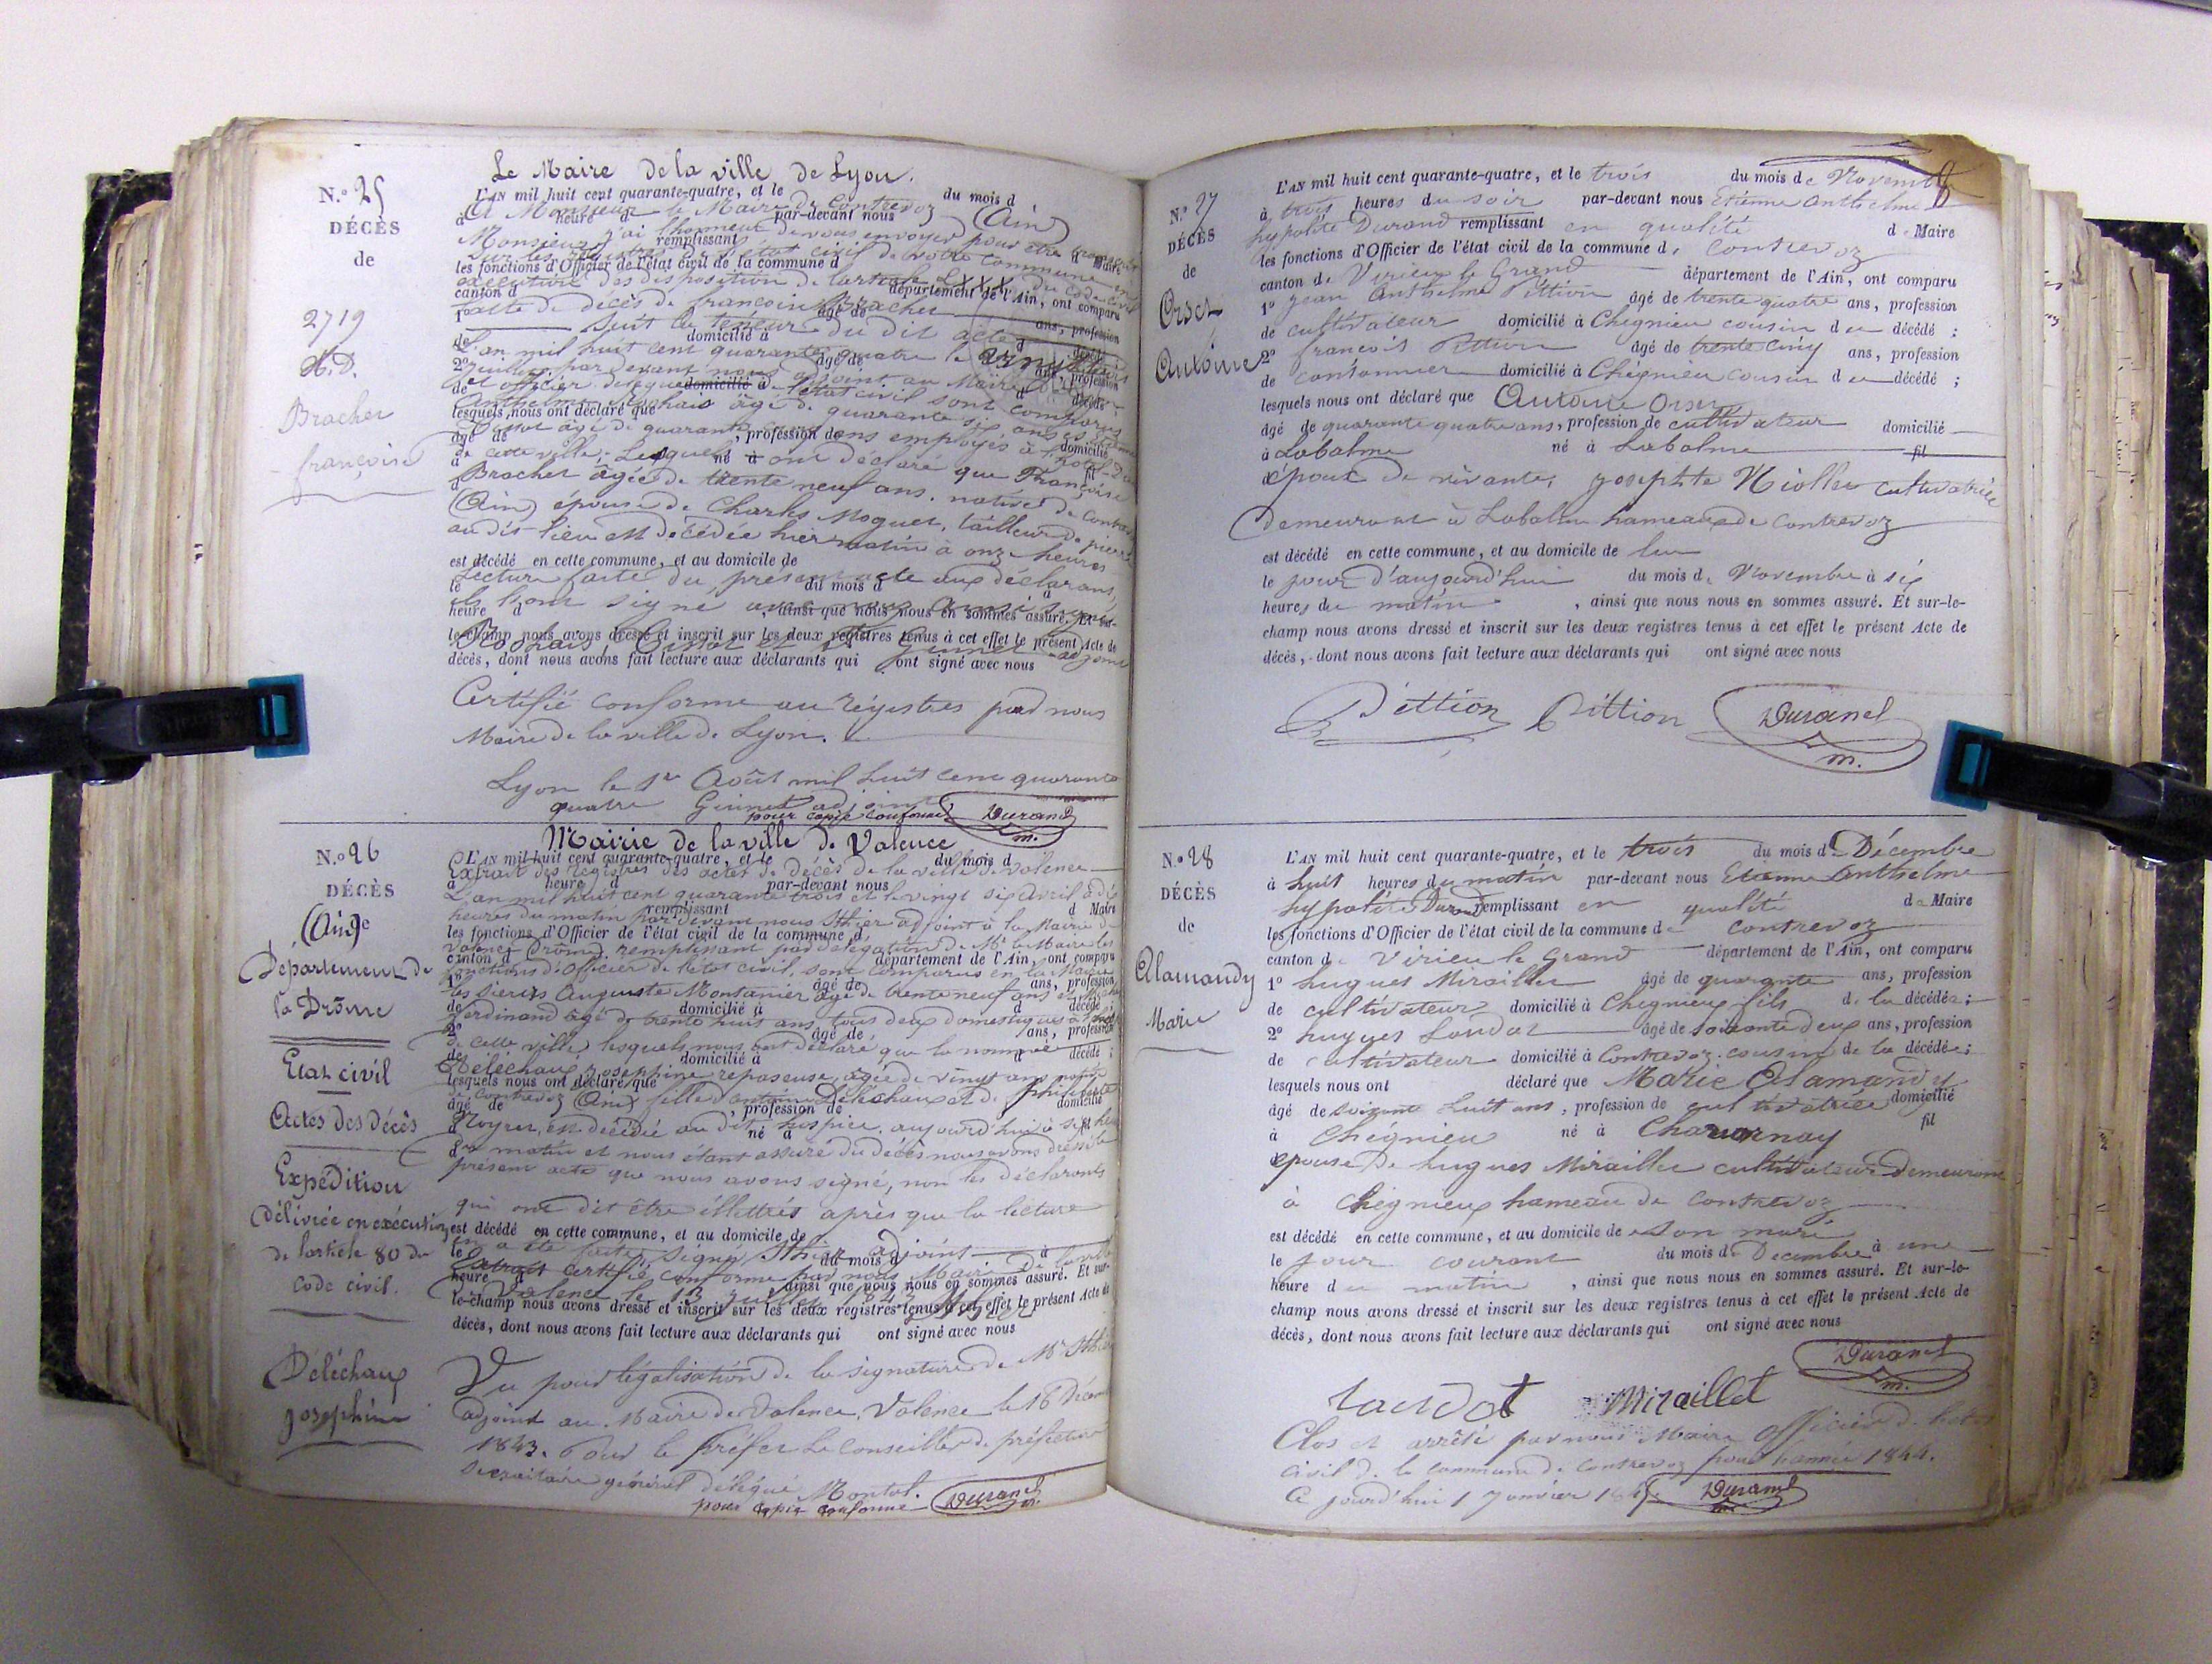 Le Maire de la ville de Lyon.
N.o 25
DÉCÈS
de
2719
Bracher
françoise
L'AN mil huit cent quarante-quatre, et le du mois d
A Monsieur le Maire de Contrevoz (Ain)
à heure d par-devant nous
Monsieur, j'ai l'honneur de vous envoyer pour être
remplissant d Maire
sur les registres de l'état civil de votre commune en
les fonctions d'Officier de l'état civil de la commune d
exécution des disposition de l'article LXXX du Code Civil
canton d département de l'Ain, ont comparu
l'acte de décès de françoise Bracher
1o âgé de ans, profession
Suit la teneur du dit acte
de domicilié à d décédé ;
L'an mil huit cent quarante quatre le
2o âgé de ans, profession
par devant nous adjoint au Maire
et officier délégué de l'état civil sont comparus
de domicilié à d décédé ;
Anthelme Rochais âgé de quarante six ans et
lesquels nous ont déclaré que
âgé de quarante ans employés à l'hotel
âgé de , profession de domicilié
de cette ville. Lesquels ont déclaré que Françoise
à né à fil
Bracher âgée de trente neuf ans. native de Contrevoz
d
(Ain) épouse de Charles Moquet, tailleur de pierre
au dis-lieu est décédée hier matin à onze heures
est décédé en cette commune, et au domicile de
Lecture faite du présent acte aux déclarants,
le du mois d à
ils l'ont signé avec nous
heure d , ainsi que nous nous en sommes assuré. Et sur-
le-champ nous avons dressé et inscrit sur les deux registres tenus à cet effet le présent Acte de
Rochais, et adjoint
décès, dont nous avons fait lecture aux déclarants qui ont signé avec nous
Certifié conforme au régistres par nous
Maire de la ville de Lyon.
Lyon le 1er Août mil huit cent quarante
quatre adjoint
pour copie conforme Durand
m.
Mairie de la ville de Valence
N.o 26
DÉCÈS
de
(Ain)
Département de
la Drôme
Etat civil
Actes des Décès
Expédition
Délivrée en exécution
de l'article 80 du
Code civil.
Déléchaux
Josephine
L'AN mil huit cent quarante-quatre, et le du mois d
Extrait des registres des actes de décès de la ville de valence
à heure d par-devant nous
L'an mil huit cent quarante trois et le vingt six avril à dix
remplissant d Maire
heures du matin par devant nous Sthier adjoint à la Mairie de
les fonctions d'Officier de l'état civil de la commune d
Valence (Drôme) remplissant par délégation de Mr le Maire les
canton d département de l'Ain, ont comparu
fonctions d'officier de l'état civil, sont comparus en la Mairie
1o âgé de ans, profession
les sieurs Auguste Montanier âgé de trente neuf ans et
de domicilié à d décédé ;
ferdinand âgé de trente huit ans tous deux domestiques à
2o âgé de ans, profession
de cette ville lesquels nous ont déclaré que la nommée
de domicilié à d décédé ;
Déléchaux Josephine repasseuse, âgée de vingt ans native
lesquels nous ont déclaré que
de Contrevoz (Ain) fille antoine Déléchaux et de philiberte
âgé de , profession de domicilié
est décédée au dit hospice, aujourd'hui à
à né à fil
du matin et nous étant assuré du décès nous avons dressé le
présent acte que nous avons signé, non les déclarants
qui ont dit être illettrés après que la lecture
est décédé en cette commune, et au domicile de
en a été faite, Signé, Sthier adjoint
le du mois d à
Extrait certifié conforme par nous Maire de la ville
heure d ainsi que nous nous en sommes assuré. Et sur-
Valence le 13 juillet 1843
le-champ nous avons dressé et inscrit sur les deux registres tenus à cet effet le présent Acte de
décès, dont nous avons fait lecture aux déclarants qui ont signé avec nous
Vu pour légalisation de la signature de Mr Sthier
adjoint au Maire de Valence, Valence le 16 Décembre
1843. Pour le préfet Le Conseiller de préfecture
secraitaire général délégué
pour copie conforme Durand
m.
N.o 27
DÉCÈS
de
Orset
Antoine
L'AN mil huit cent quarante-quatre, et le trois du mois de Novembre
à trois heures du soir par-devant nous Etienne Anthelme
hypolite Durand remplissant en qualité de Maire
les fonctions d'Officier de l'état civil de la commune de contrevoz
canton de Virieu le Grand département de l'Ain, ont comparu
1o jean Anthelme Pittion âgé de trente quatre ans, profession
de cultivateur domicilié à Chegnieu cousin du décédé ;
2o françois Pittion âgé de trente cinq ans, profession
de domicilié à Chegnieu cousin du décédé ;
lesquels nous ont déclaré que Antoine Orset
âgé de quarante quatre ans, profession de cultivateur domicilié
à Labalme né à Labalme fil
époux de vivante, josephte cultivatrice
Demeurant à Labalme hameau de Contrevoz
est décédé en cette commune, et au domicile de lui
le jour d'aujourd'hui du mois de Novembre à six
heures du matin , ainsi que nous nous en sommes assuré. Et sur-le-
champ nous avons dressé et inscrit sur les deux registres tenus à cet effet le présent Acte de
décès, dont nous avons fait lecture aux déclarants qui ont signé avec nous
Pittion Pittion Durand
m.
N.o 28
DÉCÈS
de
Alamandy
Marie
L'AN mil huit cent quarante-quatre, et le trois du mois de Décembre
à huit heures du matin par-devant nous Etienne Anthelme
hypolite Durand remplissant en qualité de Maire
les fonctions d'Officier de l'état civil de la commune de contrevoz
canton de Virieu le Grand département de l'Ain, ont comparu
1o hugues Miraillet âgé de quarante ans, profession
de cultivateur domicilié à Chegnieu fils de la décédée ;
2o hugues Laudot âgé de soixante deux ans, profession
de cultivateur domicilié à Contrevoz cousin de la décédée ;
lesquels nous ont déclaré que Marie Alamandy
âgé de soixante huit ans, profession de cultivatrice domicilié
à Chégnieu né à Charvornay fil
épouse de hugues Miraillet cultivateur Demeurant
à Chégnieu hameau de contrevoz
est décédé en cette commune, et au domicile de son mari
le jour courant du mois de Decembre à une
heure du matin , ainsi que nous nous en sommes assuré. Et sur-le-
champ nous avons dressé et inscrit sur les deux registres tenus à cet effet le présent Acte de
décès, dont nous avons fait lecture aux déclarants qui ont signé avec nous
Durand
m.
Laudot Miraillet
Clos et arrêté par nous Maire officier de l'état
civil de la commune de Contrevoz pour l'année 1844.
Ce jourd'hui 1 Janvier Durand
m.